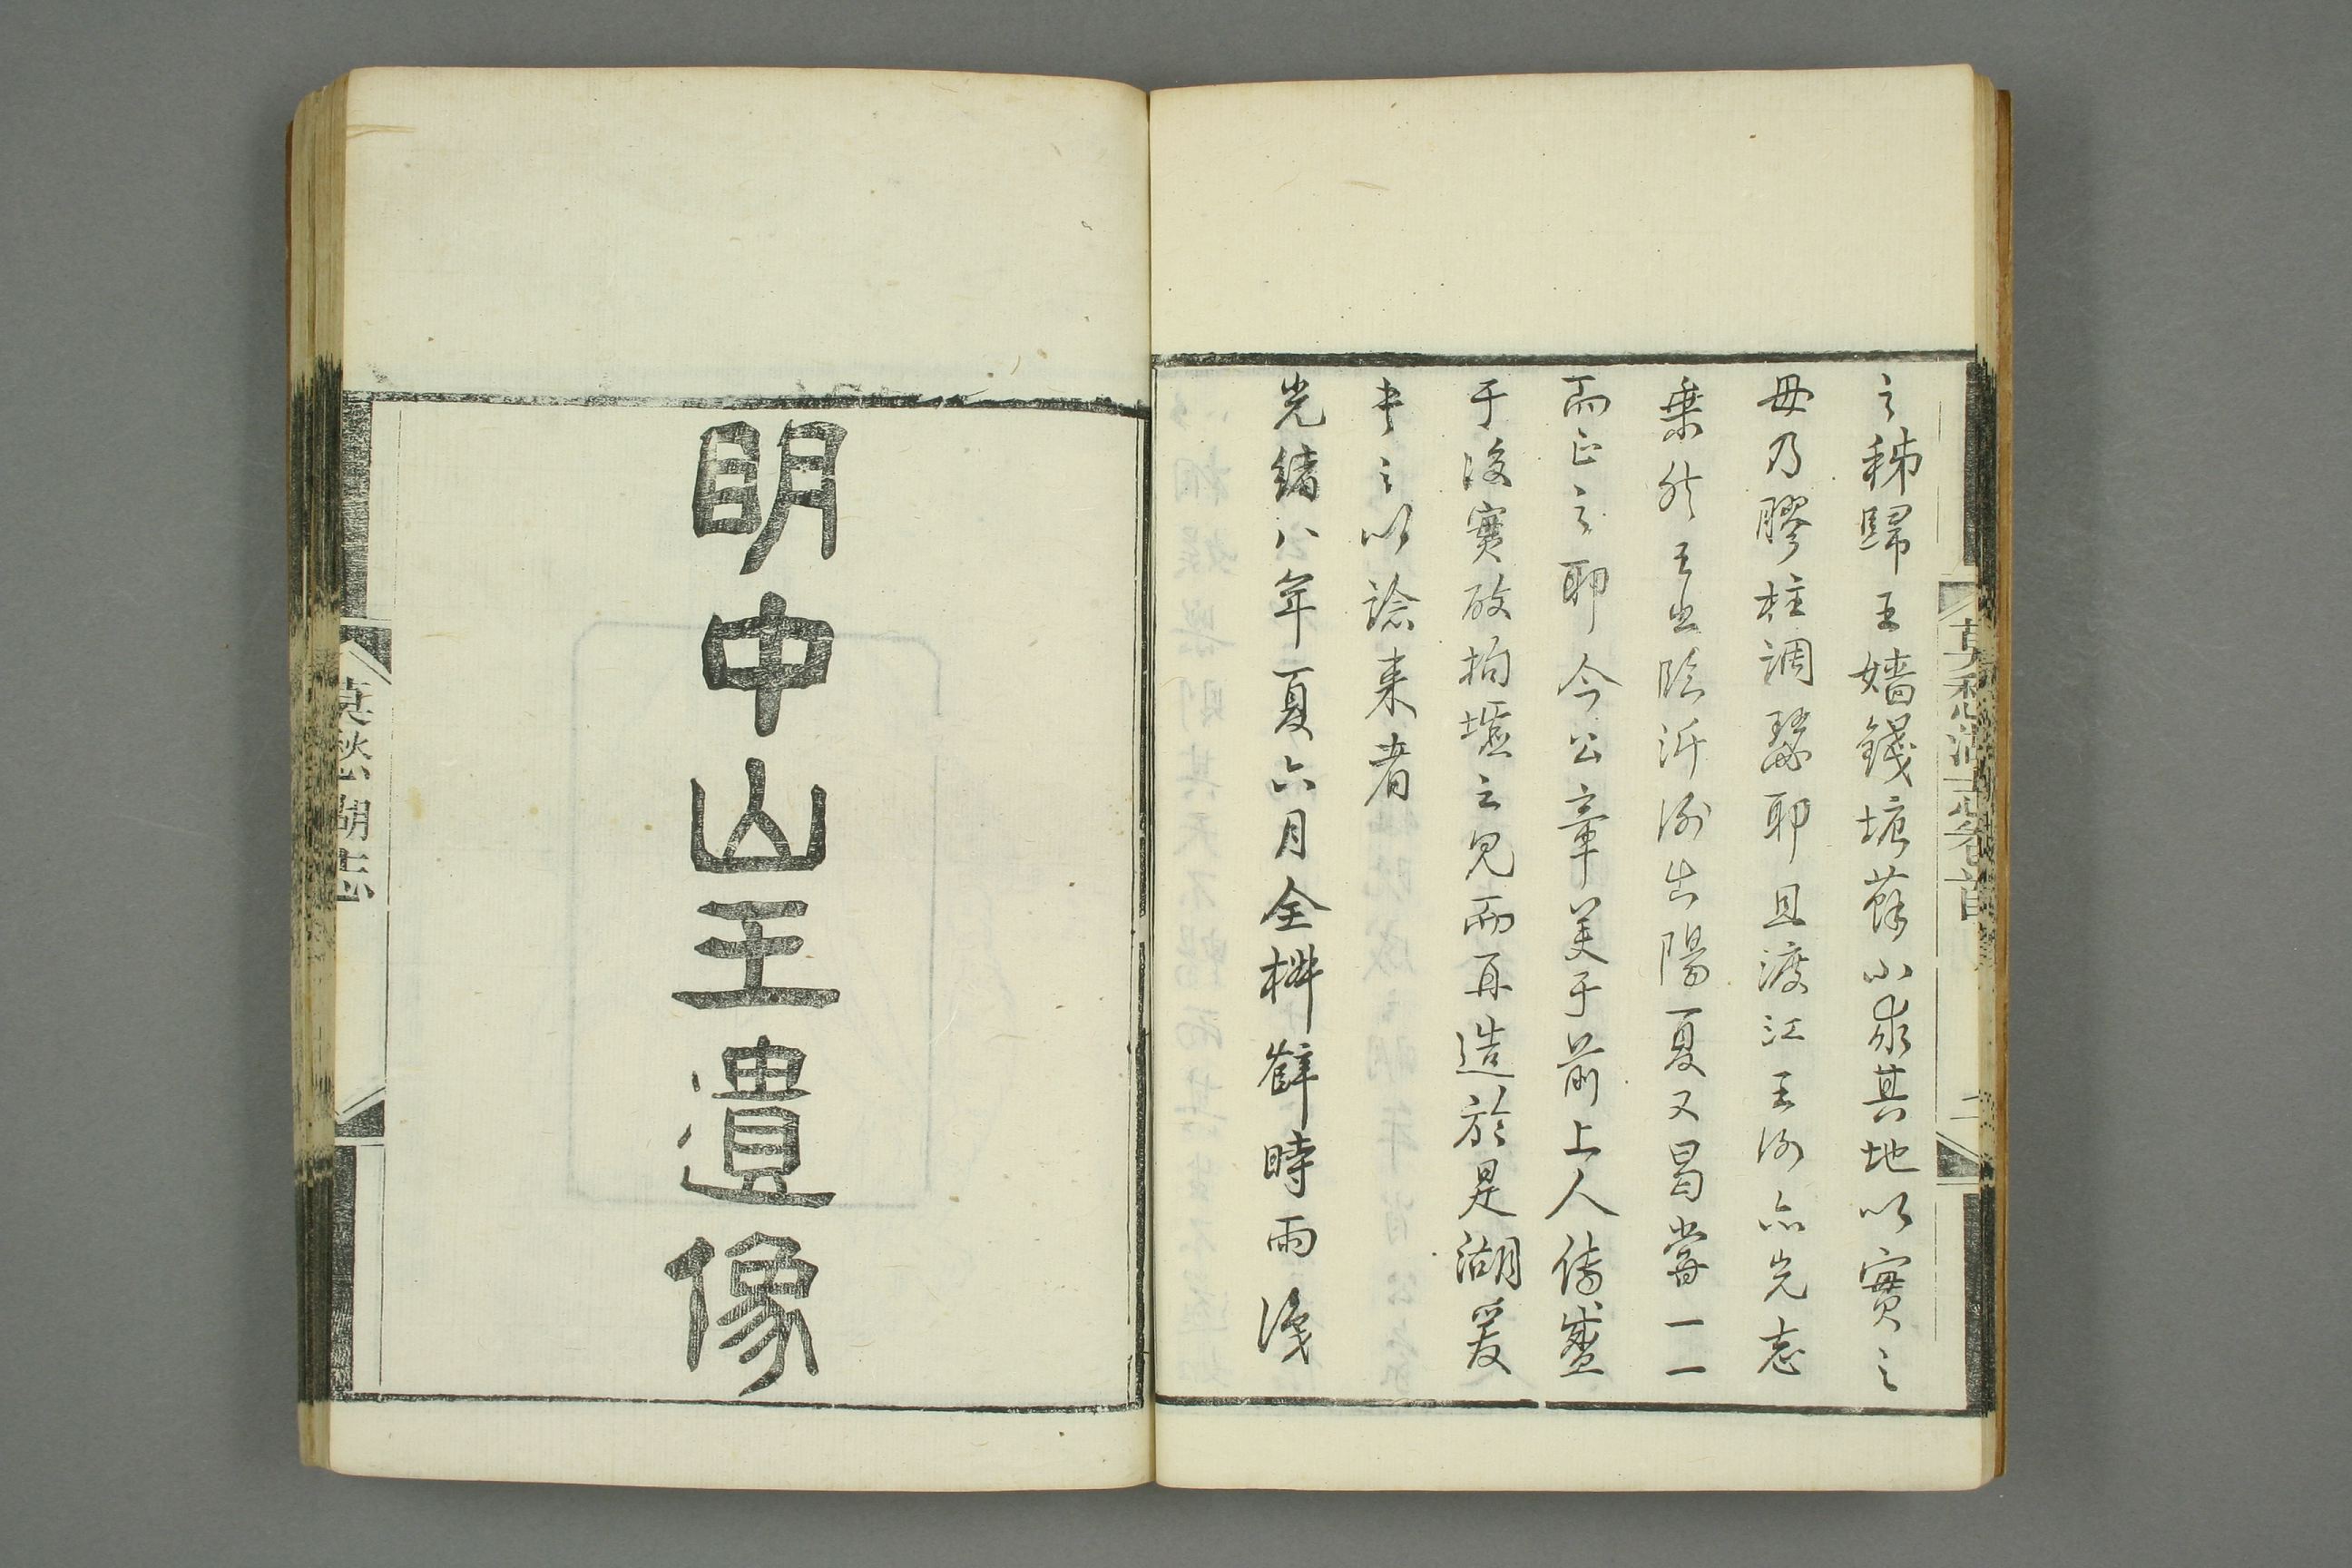 之秭歸王嬙錢塘蘇小求其地以實之
毋乃膠柱調瑟耶且渡江王謝亦光志
乘然王出臨沂謝出陽夏又曷嘗一一
而正之耶今公韋美于前上人傳盛
于後實破拘墟之見而再造於是湖爰
書之以諗来者
光緒八年夏六月全椒薛時雨識
莫愁湖志卷首
二
明中山王遺像
莫愁湖志